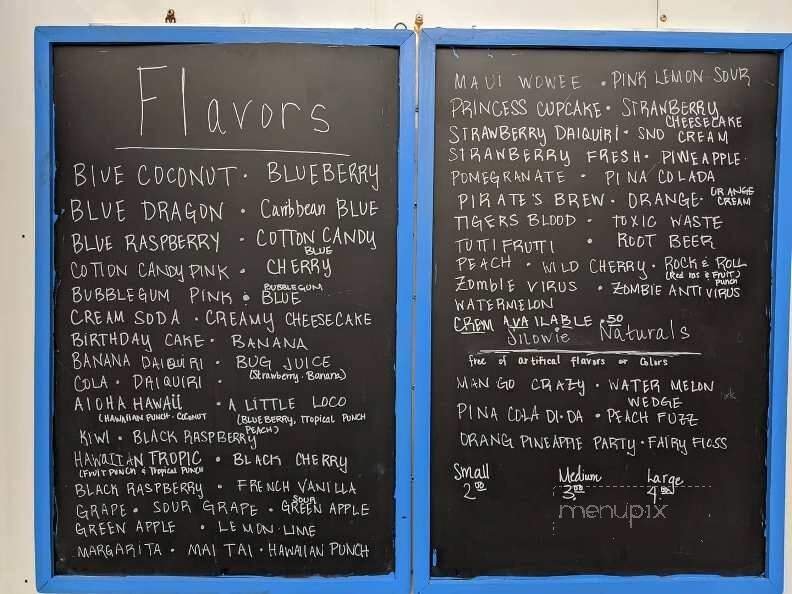 Flavors
BlUE COCONUT · BLUEBERRY
BLUE DRAGON · Caribbean BLUE
BLUE RASPBERRY · COTTON CANDY BLUE
COTTON CANDY PINK · CHERRY
BUBBLEGUM PINK · BUBBLEGUM BLUE
CREAM SODA · CREAMY CHEESECAKE
BIRTHDAY CAKE · BANANA
BANANA DAIQUIRI · BUG JUICE
COLA · DAIQUIRI · (Strawberry · Banana)
AlOHA HAWAII · A LITTLE LOCO
(HAWAIIAN PUNCH · COCONUT (BLUEBERRY, Tropical PUNCH
PEACH)
KIWI · BLACK RASPBERRY
HAWAIIAN TROPIC · BLACK CHERRY
(FRUIT PUNCH & Tropical PUNCH
BLACK RASPBERRY · FRENCH VANILLA
GRAPE · SOUR GRAPE · SOUR GREEN APPLE
GREEN APPLE · LEMON-LIME
MARGARITA · MAI TAI · HAWAIIAN PUNCH
MAUI WOWEE · PINK LEMON SOUR
PRINCESS CUPCAKE · STRAWBERRY CHEESECAKE
STRAWBERRY DAIQUIRI · SNO CREAM
STRAWBERRY FRESH · PINEAPPLE ·
POMEGRANATE · PINA COLADA
PIRATE'S BREW · ORANGE · ORANGE CREAM
TIGERS BLOOD · TOXIC WASTE
TUTTI FRUTTI · ROOT BEER
PEACH · WILD CHERRY · ROCK & ROLL
(Red ras & FRUIT) Punch
ZOMBIE VIRUS · ZOMBIE ANTI VIRUS
WATERMELON
CREM AVAILABLE .50
Jilowie Naturals
free of artifical flavors or Colors
MANGO CRAZY · WATER MELON WEDGE
PINA COLA DI·DA · PEACH FUZZ
ORANG PINEAPPLE PARTY · FAIRY FlOSS
Small Medium Large
2.00 3.00 4.00
menupix